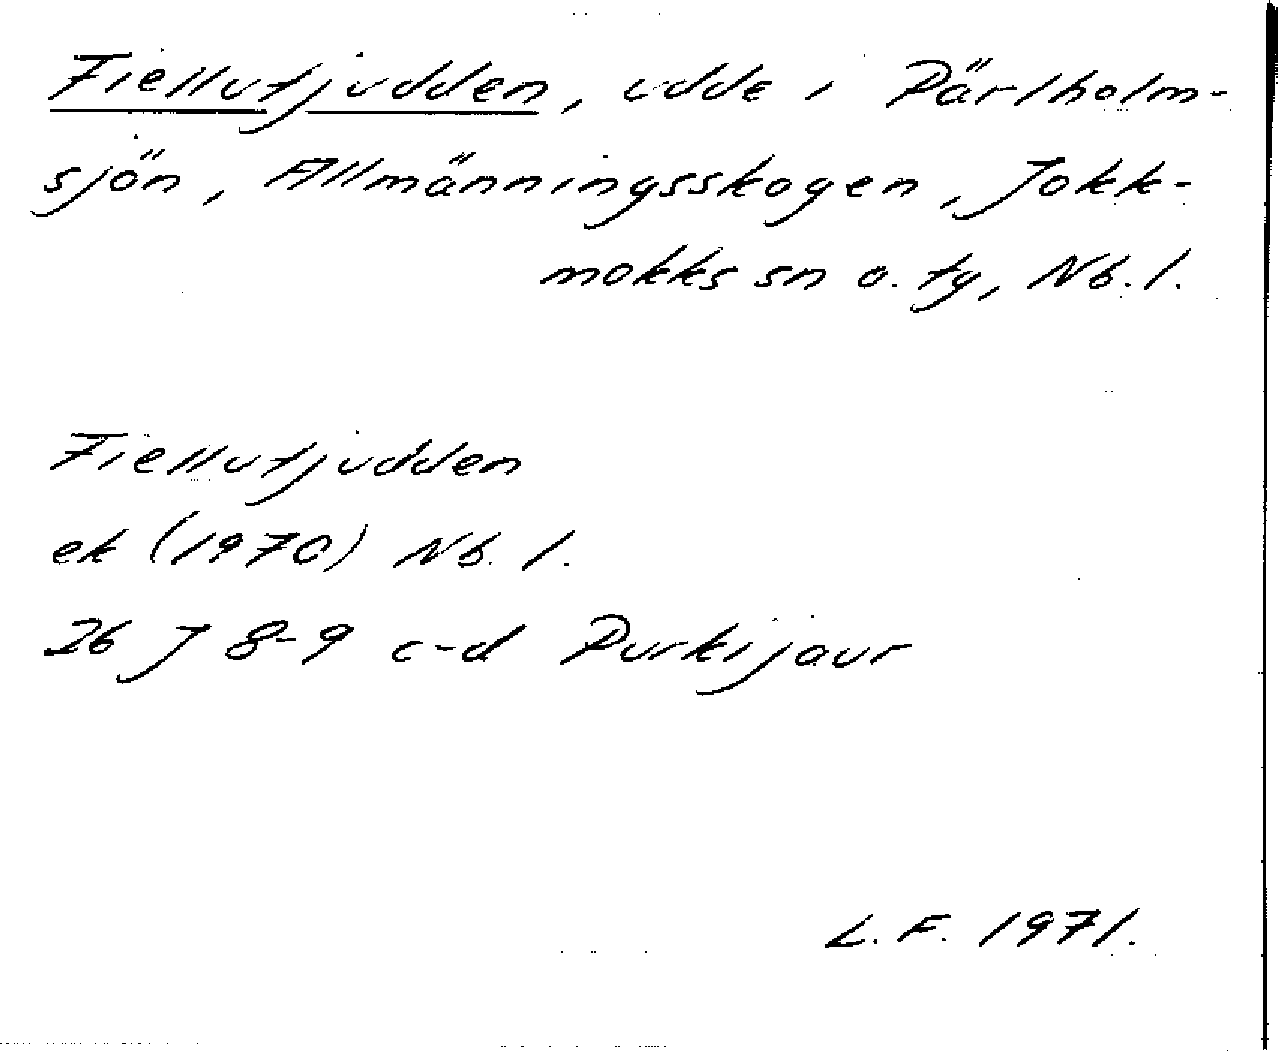 Fiellutjudden, udde i Pärlholm-
sjön, Allmänningsskogen, Jokk-
mokks sn o. tg, Nb. l.
Fiellutjudden
ek (1970) Nb. l.
26 J 8-9 c-d Purkijaur
L. F. 1971.